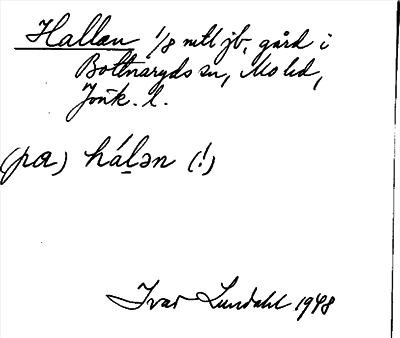 Hallan 1/8 mtl jb, gård i
Bottnaryds sn, Mo hd,
Jönk. l.
(pa) há̱lən (!)
Ivar Lundahl 1948